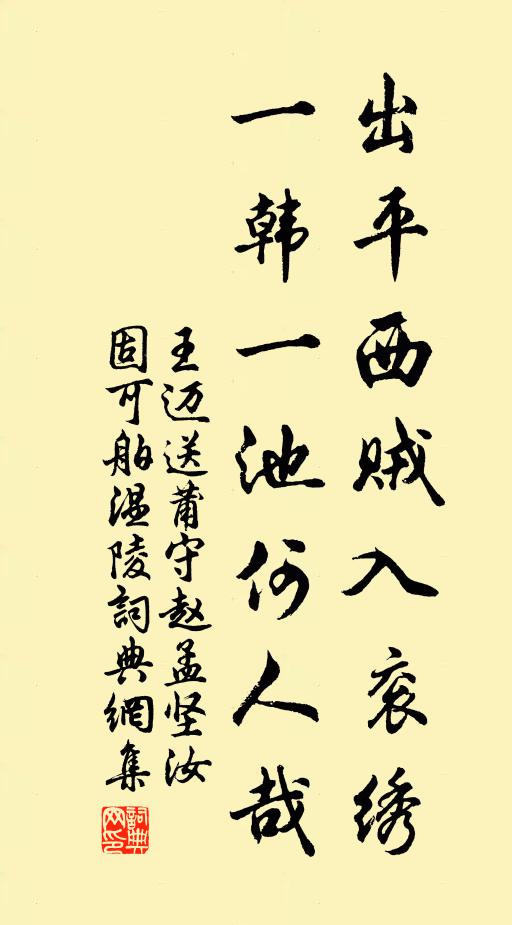 出平西贼入衮绣
一韩一池何人哉
王迈送莆守赵孟坚汝
固可舶温陵詞典網集
詞典网印